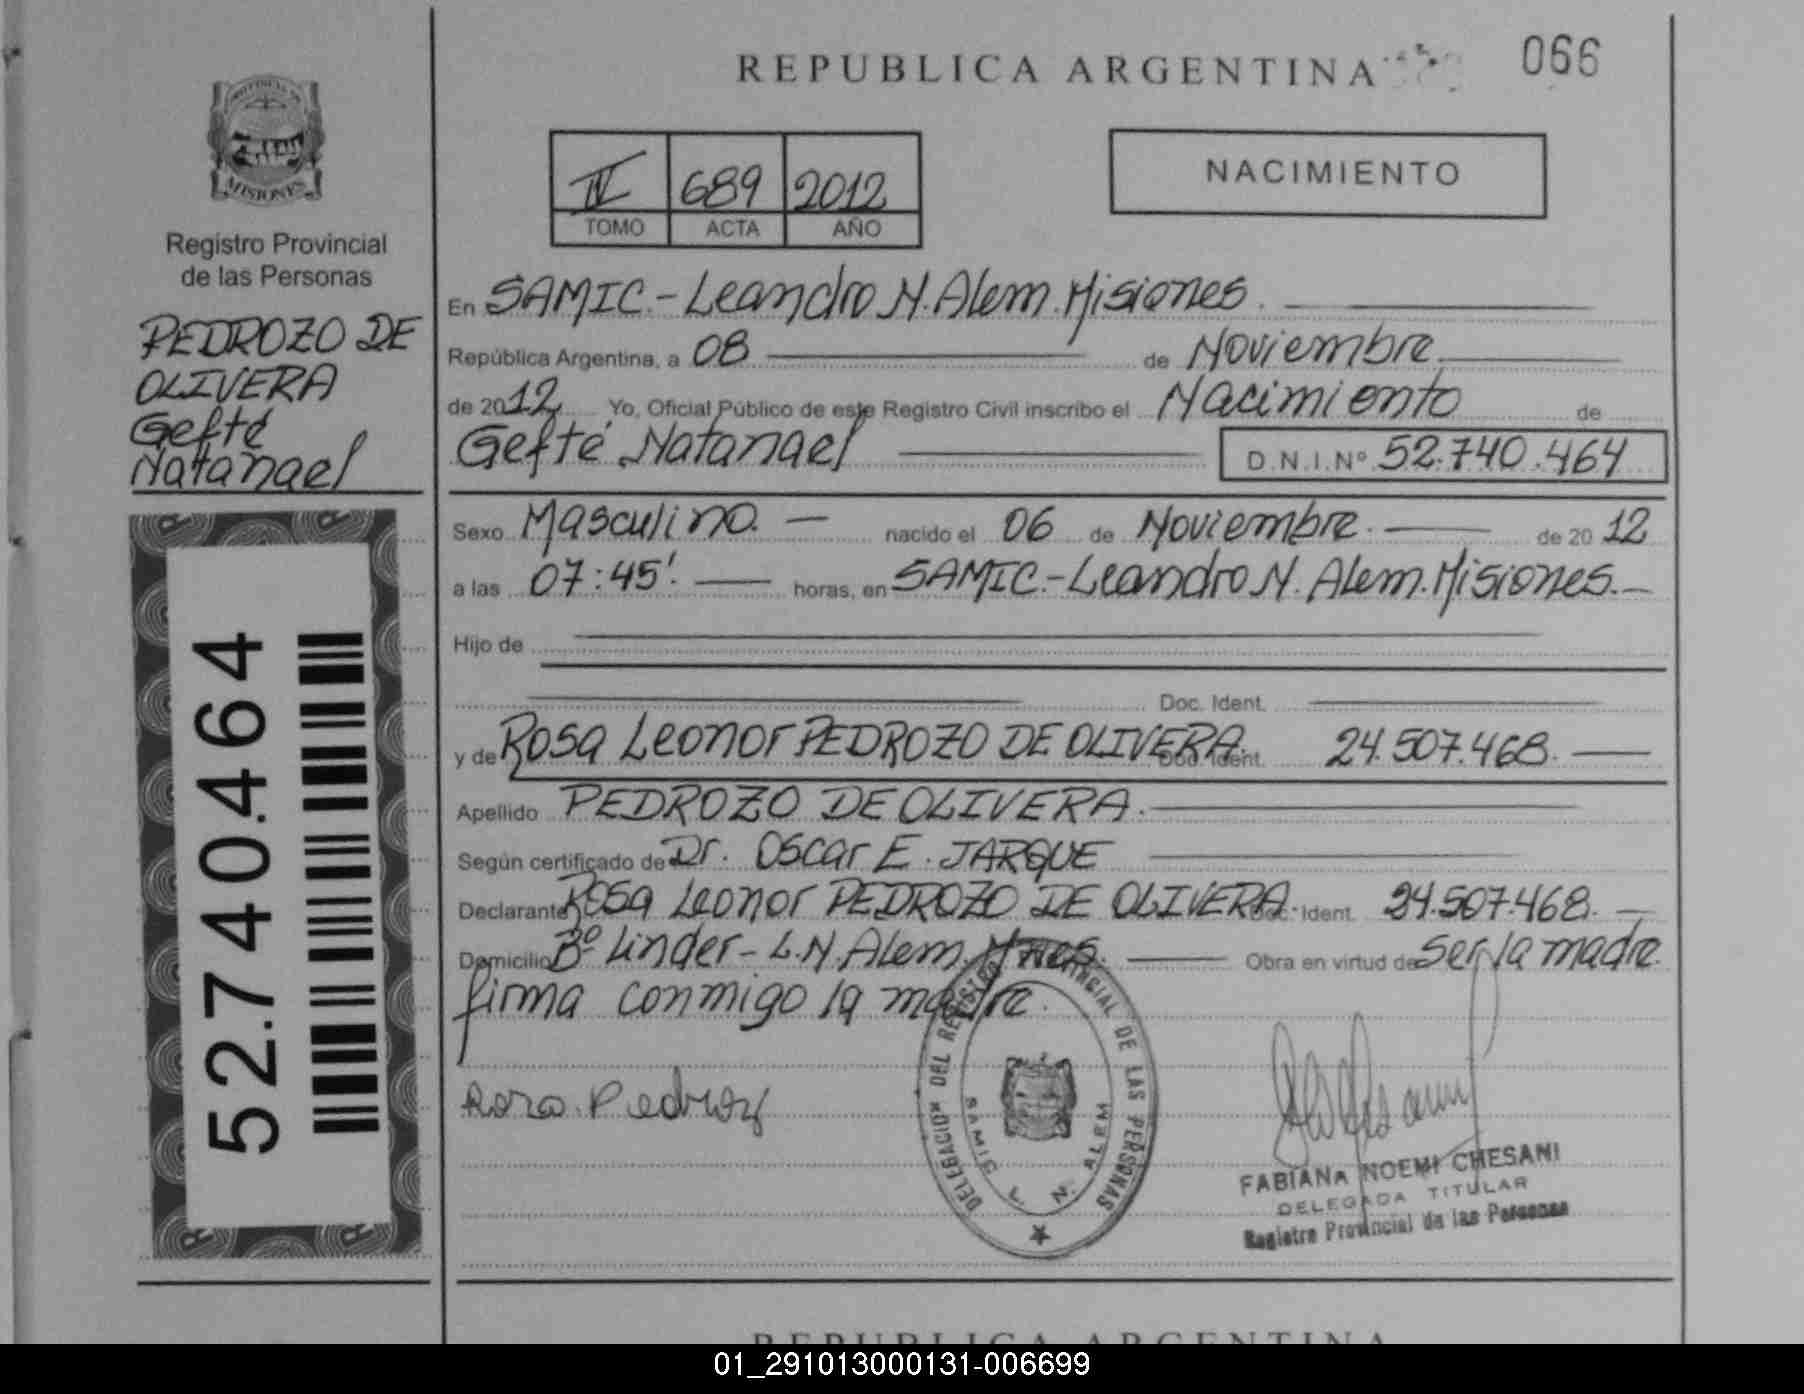 REPUBLICA ARGENTINA
066
MISIONES
Registro Provincial
de las Personas
PEDROZO DE
OLIVERA
Gefté
Natanael
52.740.464
IV 689 2012
TOMO ACTA AÑO
NACIMIENTO
En SAMIC.- Leandro N. Alem. Misiones.
República Argentina, a 08 de Noviembre.
de 2012, Yo, Oficial Público de este Registro Civil inscribo el Nacimiento de
Gefté Natanael D.N.I.Nº 52.740.464
Sexo Masculino. nacido el 06 de Noviembre. de 2012
a las 07:45'. horas, en SAMIC.- Leandro N. Alem. Misiones.
Hijo de
Doc. Ident.
y de Rosa Leonor PEDROZO DE OLIVERA. Doc. Ident. 24.507.468.
Apellido PEDROZO DE OLIVERA.
Según certificado de Dr. Oscar E. JARQUE
Declarante Rosa Leonor PEDROZO DE OLIVERA. Doc. Ident. 24.507.468.
Domicilio Bº Linder - L.N. Alem. Mnes. Obra en virtud de ser la madre.
firma conmigo la madre.
Rosa Pedroz
DELEGACION DEL REGISTRO PROVINCIAL DE LAS PERSONAS
SAMIC L. N. ALEM
FABIANA NOEMI CHESANI
DELEGADA TITULAR
Registro Provincial de las Personas
REPUBLICA ARGENTINA
01_291013000131-006699